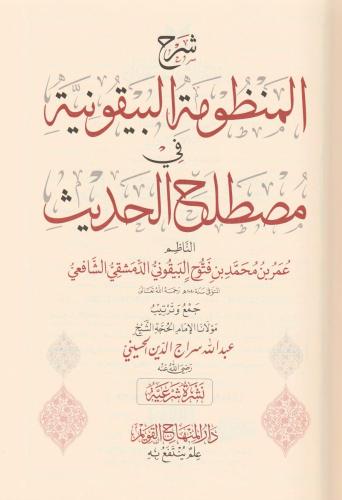 شرح
المنظومة البيقونية
في
مصطلح الحديث
الناظم
عمر بن محمد بن فتوح البيقوني الدمشقي الشافعي
المتوفى سنة ١٠٨٠هـ رحمه الله تعالى
جمع وترتيب
مولانا الإمام الحجة الشيخ
عبد الله سراج الدين الحسيني
رضي الله عنه
نشرة شرعية
دار المنهاج القويم
علم ينتفع به